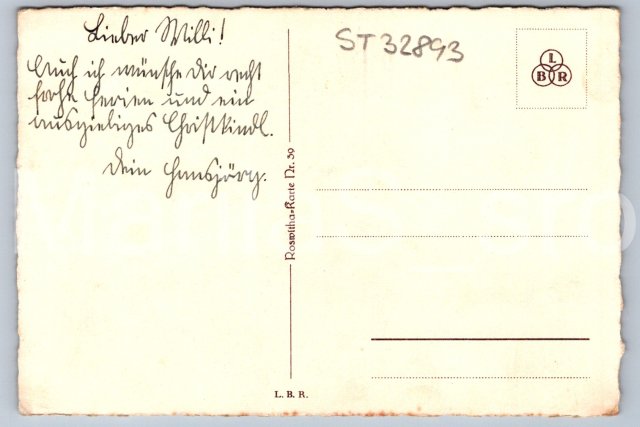 Lieber Willi!
Auch ich wünsche Dir recht
frohe Ferien und ein
ausgiebiges Christkindl.
Dein Hansjörg.
ST32893
L
B R
Roswitha-Karte Nr. 39
L. B. R.